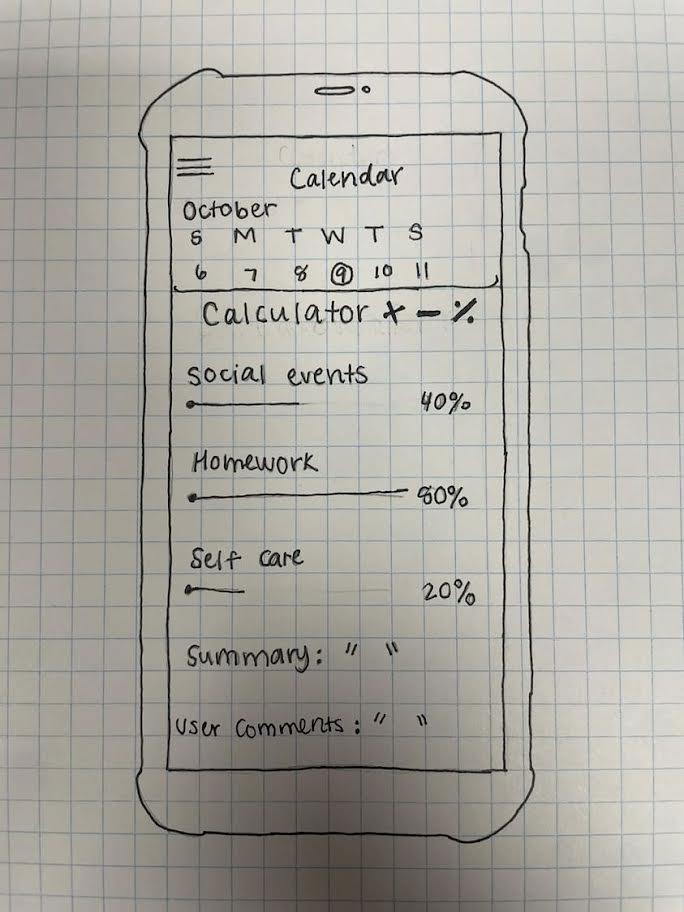 Calendar
October
S M T W T S
6 7 8 9 10 11
Calculator + - %
Social events
40%
Homework
80%
Self care
20%
Summary: " "
User Comments: " "